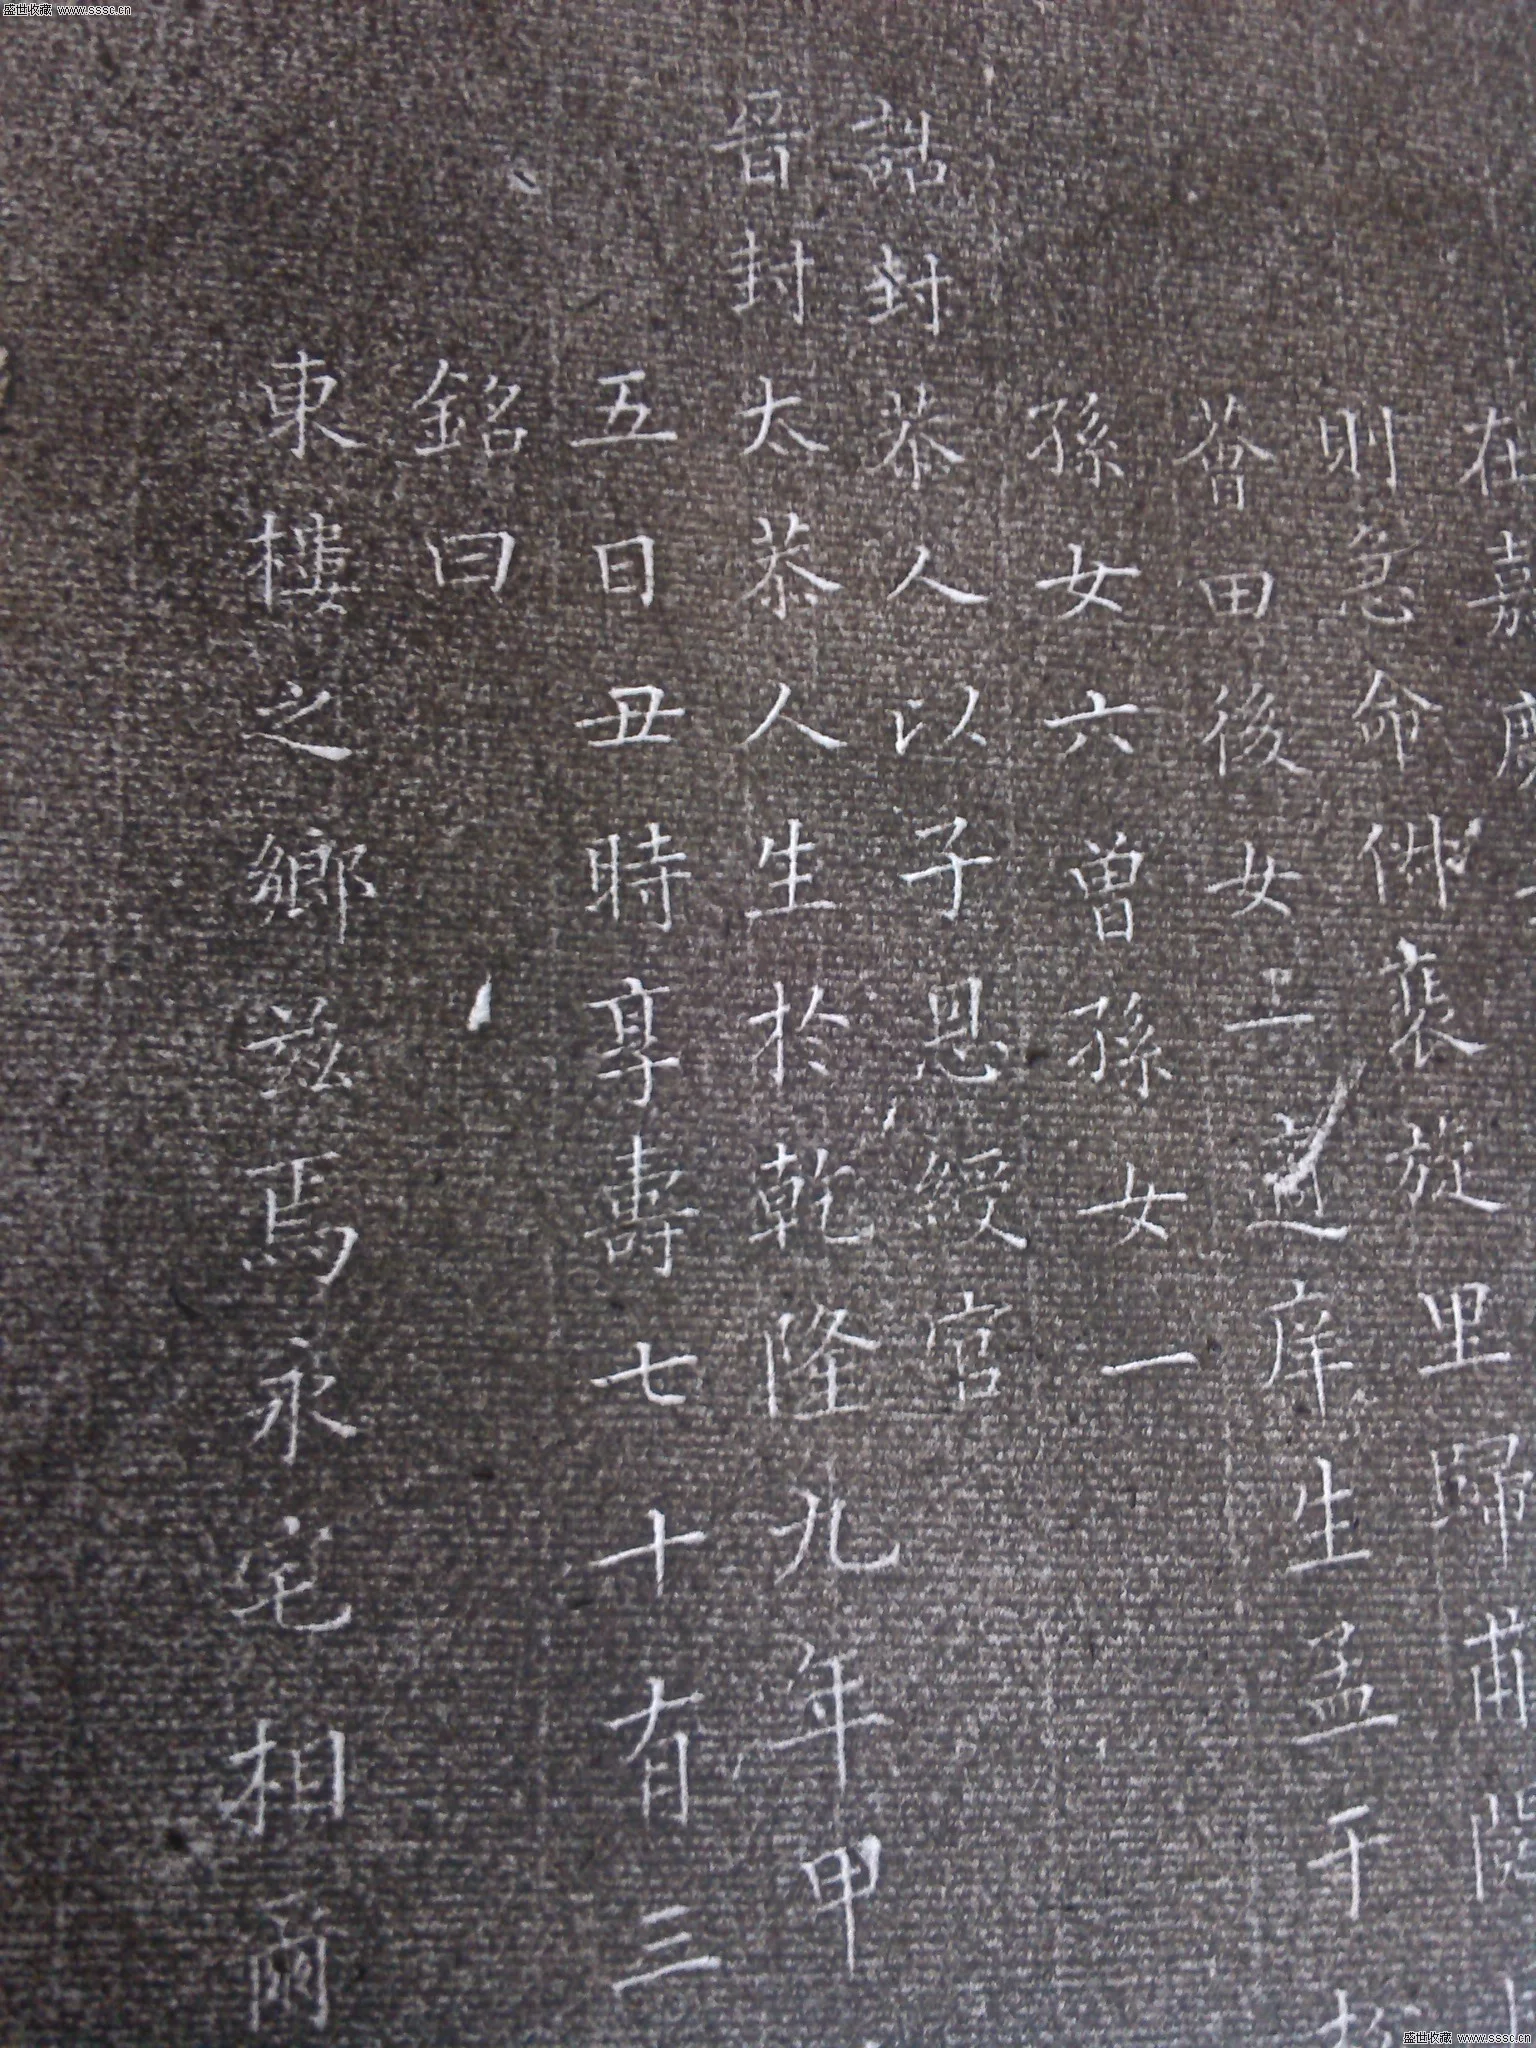 盛世收藏 www.sssc.cn
在嘉慶
則急命倂裘旋里歸
薈田後女二適庠生孟于
孫女六曾孫女一
誥封恭人以子恩綬官
晉封太恭人生於乾隆九年甲
五日丑時享壽七十有三
銘曰
東樓之鄉茲焉永宅相爾
盛世收藏 www.sssc.cn